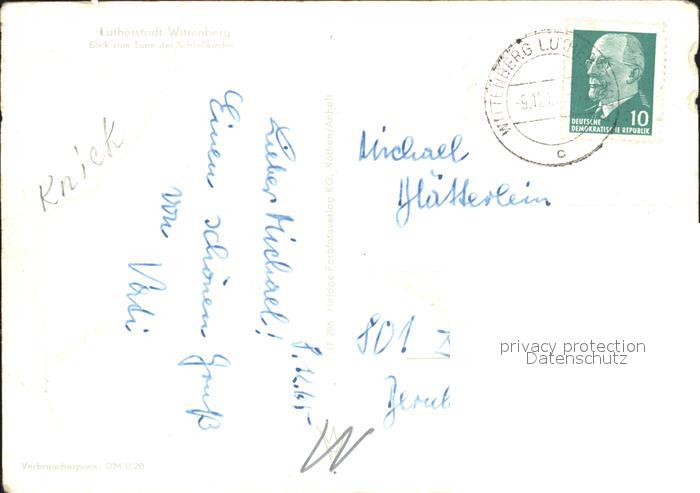 Lutherstadt Wittenberg
Blick vom Turm der Schloßkirche
Knick
Lieber Michael!
Einen schönen Gruß
von Vati
Heldge-Farbfotoverlag KG, Köthen-Anhalt
WITTENBERG LUTH
-9.12.
c
DEUTSCHE
DEMOKRATISCHE REPUBLIK
10
Michael
Blätterlein
801
privacy protection
Datenschutz
Verbraucherpreis: DM 0,20